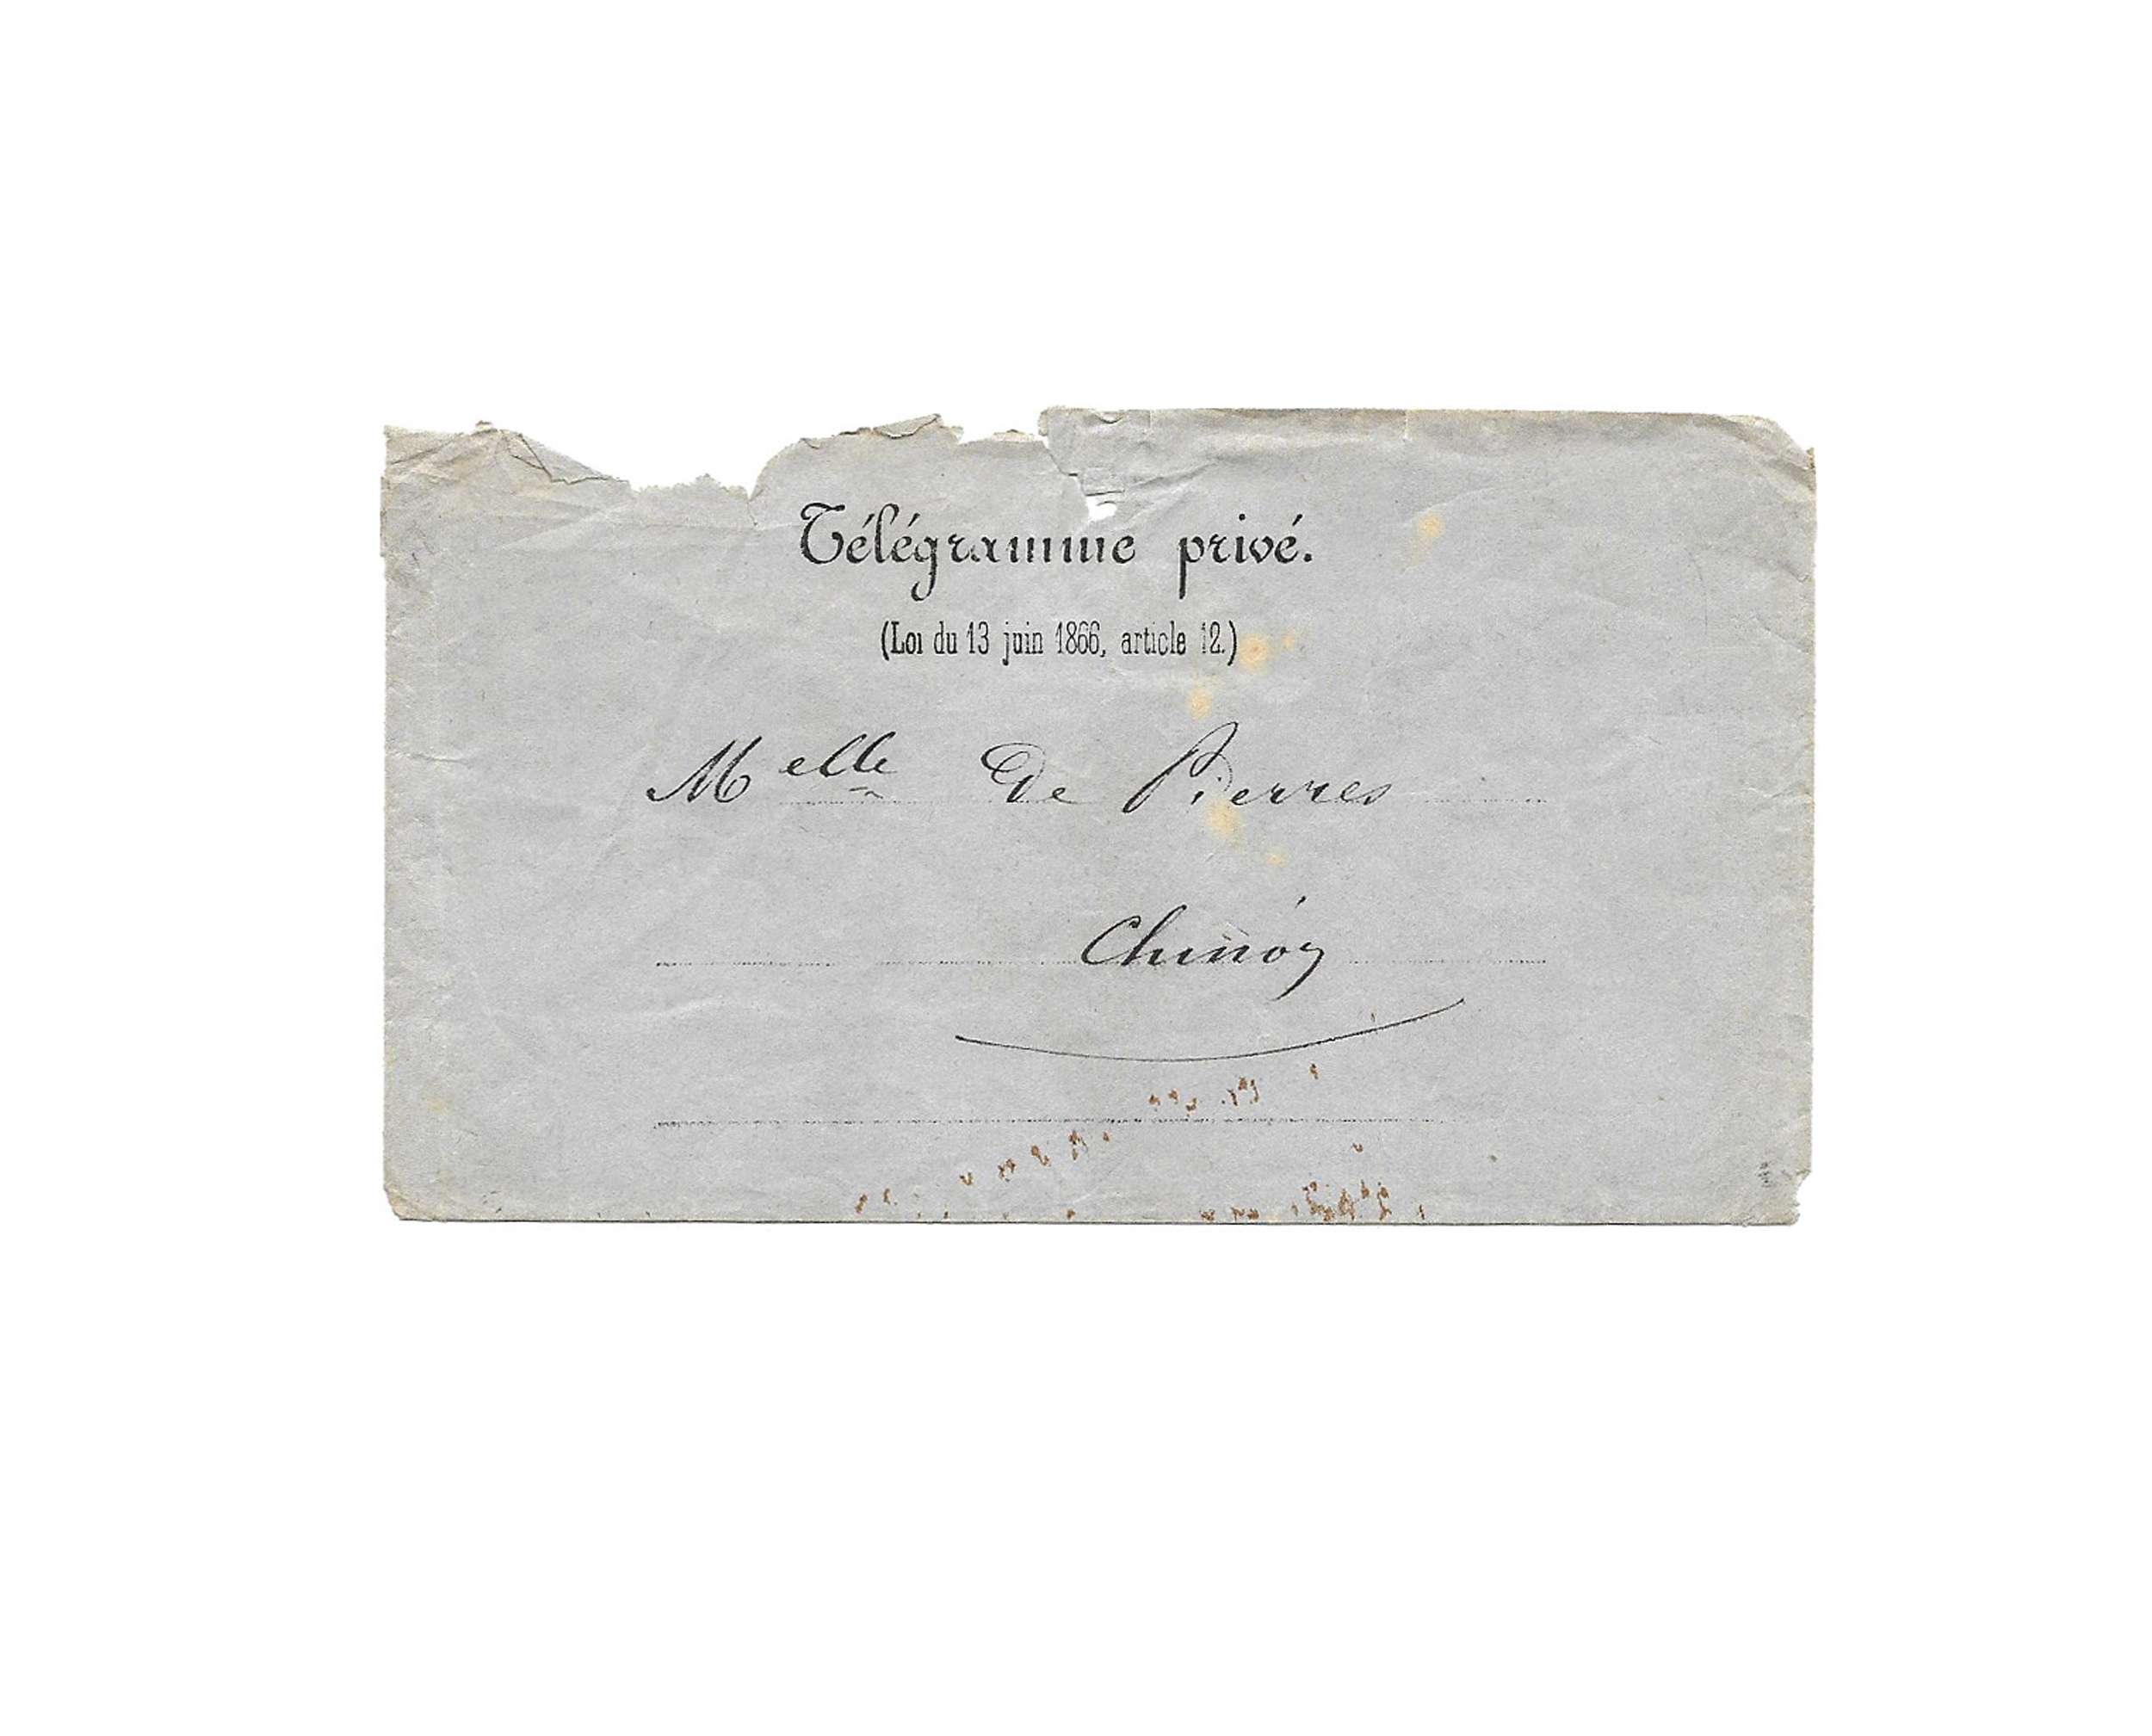 Télégramme privé.
(Loi du 13 juin 1866, article 12.)
Melle De Pierres
Chinon